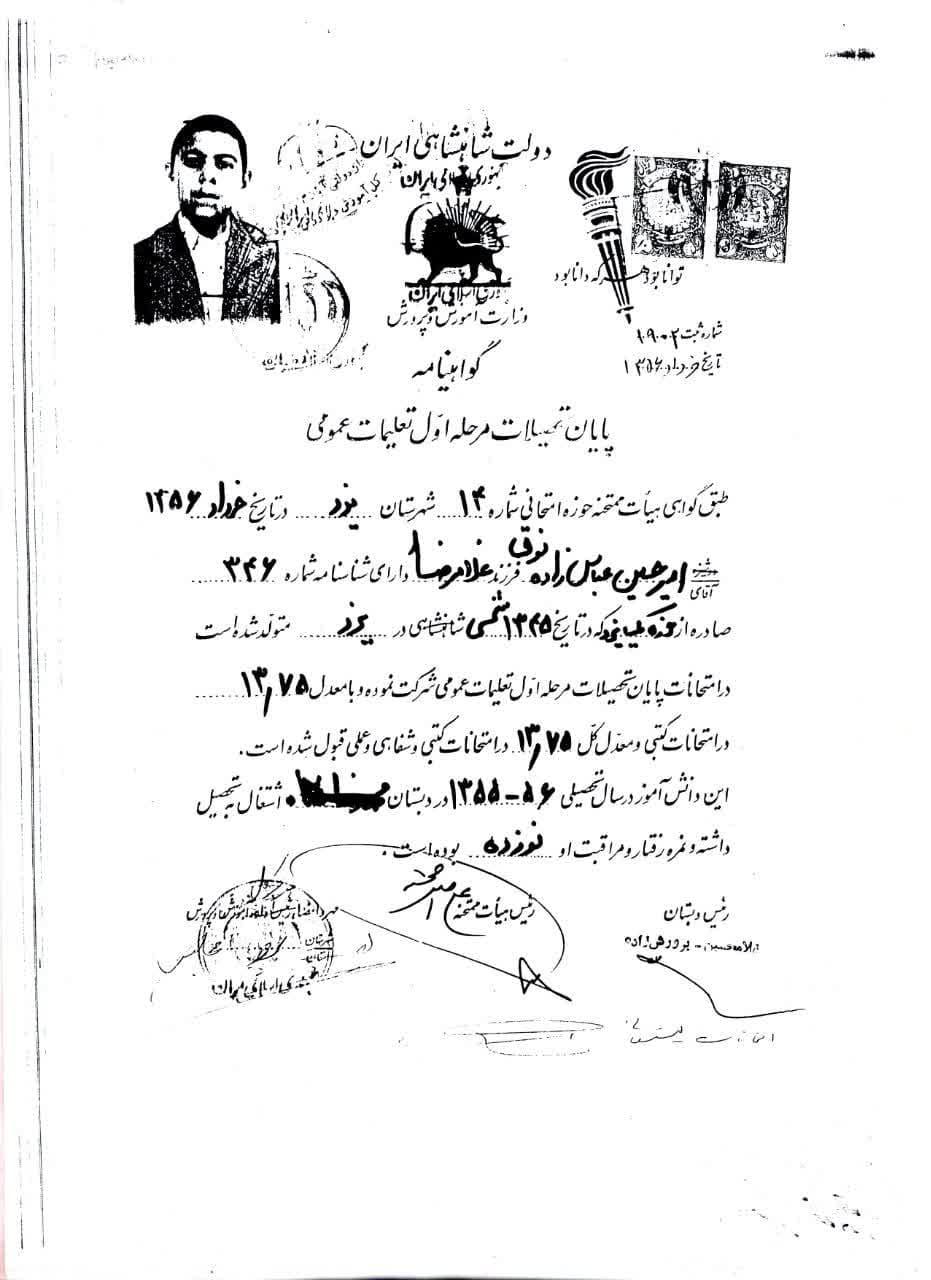 دولت شاهنشاهی ایران
جمهوری اسلامی ایران
وزارت آموزش و پرورش
توانا بود هر که دانا بود
شماره ثبت ۱۹۰۰۲
تاریخ خرداد ۱۳۵۶
گواهینامه
پایان تحصیلات مرحله اوّل تعلیمات عمومی
طبق گواهی هیأت ممتحنه حوزه امتحانی شماره ۱۴ شهرستان یزد در تاریخ خرداد ۱۳۵۶
آقای امیرحسین عباس زاده فرزند غلامرضا دارای شناسنامه شماره ۳۴۶
صادره از که در تاریخ ۱۳۴۵ شمسی شاهنشاهی در یزد متولّد شده است
در امتحانات پایان تحصیلات مرحله اوّل تعلیمات عمومی شرکت نموده و با معدل ۱۳٫۷۵
در امتحانات کتبی و معدّل کلّ ۱۳٫۷۵ در امتحانات کتبی و شفاهی و عملی قبول شده است .
این دانش آموز در سال تحصیلی ۵۶-۱۳۵۵ در دبستان اشتغال به تحصیل
داشته و نمره رفتار و مراقبت او نوزده بوده است .
رئیس دبستان
رئیس هیأت ممتحنه
مهر و امضاء رئیس اداره آموزش و پرورش
شهرستان
استان
جمهوری اسلامی ایران